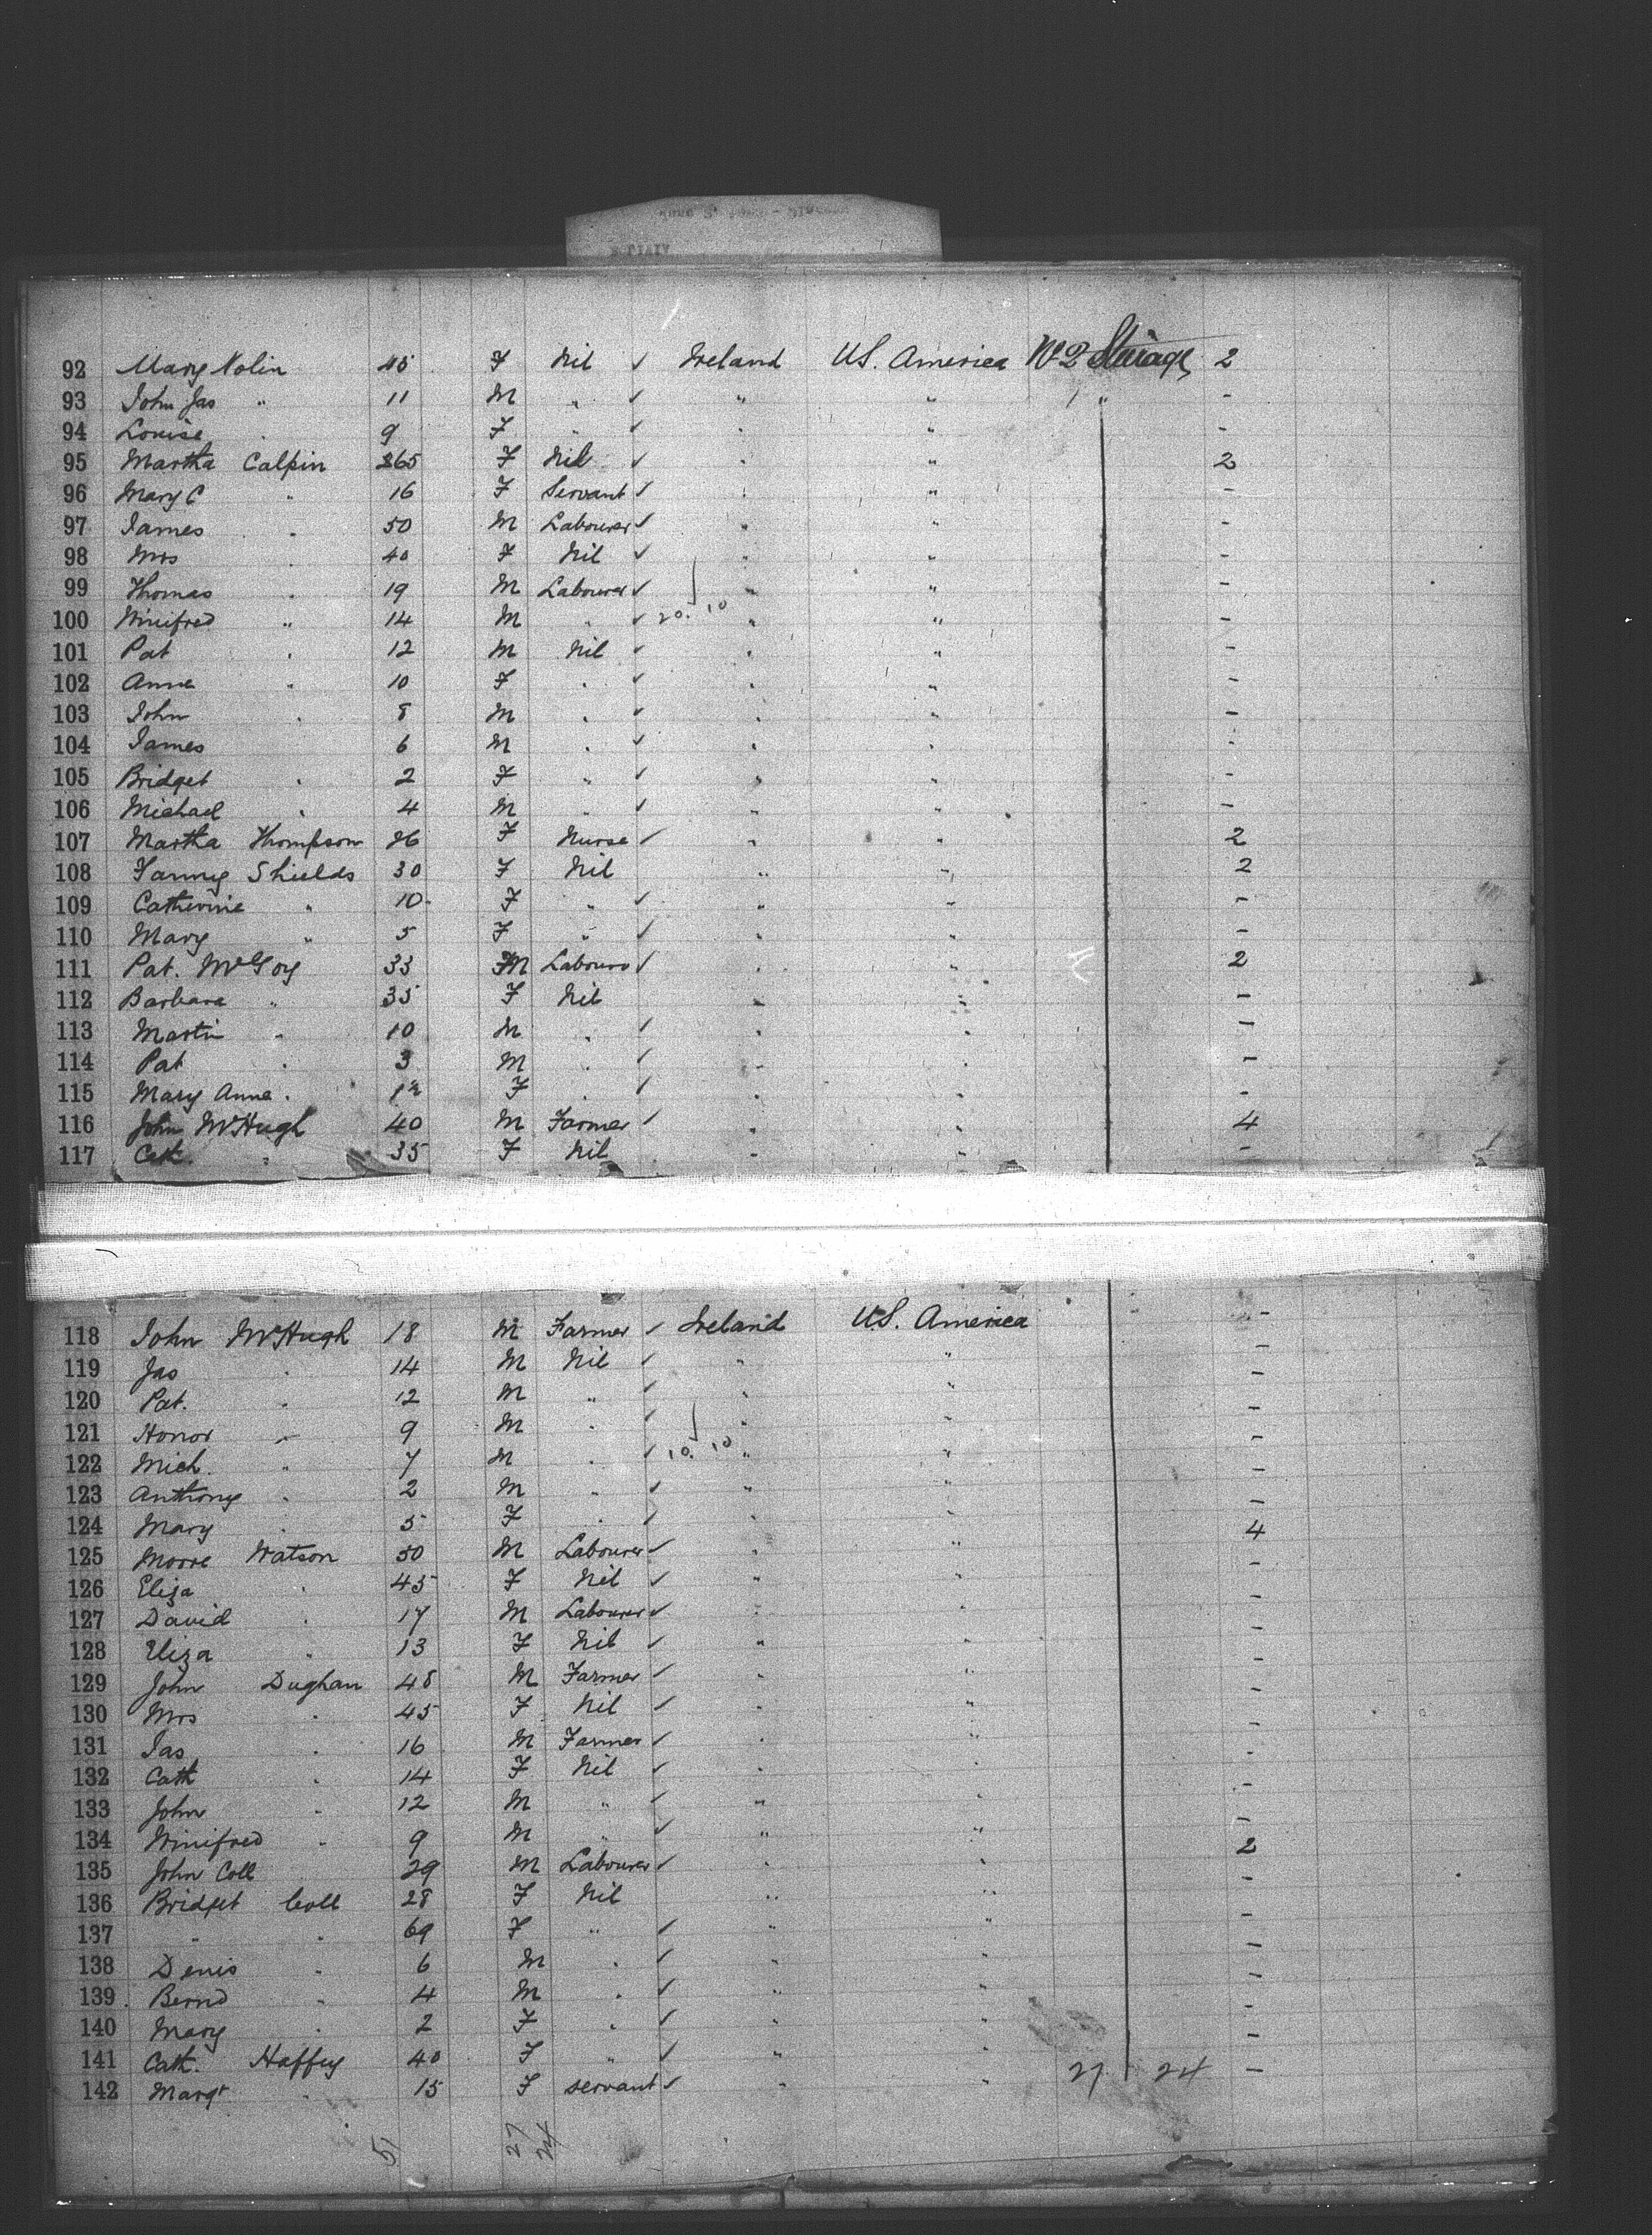 92 Mary Nolin 45 F Nil ✓ Ireland U.S. America No 2 Steerage 2
93 John Jas " 11 M " ✓ " " " -
94 Louise " 9 F " ✓ " " -
95 Martha Calpin 65 F Nil ✓ " " 2
96 Mary C " 16 F Servant ✓ " " -
97 James " 50 M Labourer ✓ " " -
98 Mrs " 40 F Nil ✓ " " -
99 Thomas " 19 M Labourer ✓ " " -
100 Winifred " 14 M " ✓ 20. 10 " " -
101 Pat " 12 M Nil ✓ " " -
102 Anna " 10 F " ✓ " " -
103 John " 8 M " ✓ " " -
104 James 6 M " ✓ " " -
105 Bridget " 2 F " ✓ " " -
106 Michael " 4 M " ✓ " " -
107 Martha Thompson 26 F Nurse ✓ " " 2
108 Fanny Shields 30 F Nil " " 2
109 Catherine " 10 F " ✓ " " -
110 Mary " 5 F " ✓ " " -
111 Pat. McGoy 33 M Labourer ✓ " " 2
112 Barbara " 35 F Nil " " -
113 Martin " 10 M " ✓ " " -
114 Pat " 3 M " ✓ " -
115 Mary Anna " F " ✓ " " -
116 John McHugh 40 M Farmer ✓ " " 4
117 Cath. " 35 F Nil " " -
118 John McHugh 18 M Farmer ✓ Ireland U.S. America -
119 Jas " 14 M Nil ✓ " " -
120 Pat. " 12 M " ✓ " " -
121 Honor " 9 M " ✓ " " -
122 Mich. " 7 M " ✓ 10. 10 " " -
123 Anthony " 2 M " ✓ " " -
124 Mary " 5 F " ✓ " " -
125 Moore Watson 50 M Labourer ✓ " " 4
126 Eliza " 45 F Nil ✓ " -
127 David " 17 M Labourer ✓ " " -
128 Eliza " 13 F Nil ✓ " " -
129 John Dughan 48 M Farmer ✓ " " -
130 Mrs " 45 F Nil ✓ " " -
131 Jas " 16 M Farmer ✓ " " -
132 Cath " 14 F Nil ✓ " -
133 John " 12 M " ✓ " " -
134 Winifred " 9 M " ✓ " " -
135 John Coll 29 M Labourer ✓ " " 2
136 Bridget Coll 28 F Nil " " -
137 " " 69 F " ✓ " " -
138 Denis " 6 M " ✓ " " -
139 Bernd " 4 M " ✓ " " -
140 Mary " 2 F " ✓ " " -
141 Cath. Haffey 40 F " ✓ " " -
142 Margt " 15 F servant ✓ " " 27 24 -
51 27 24